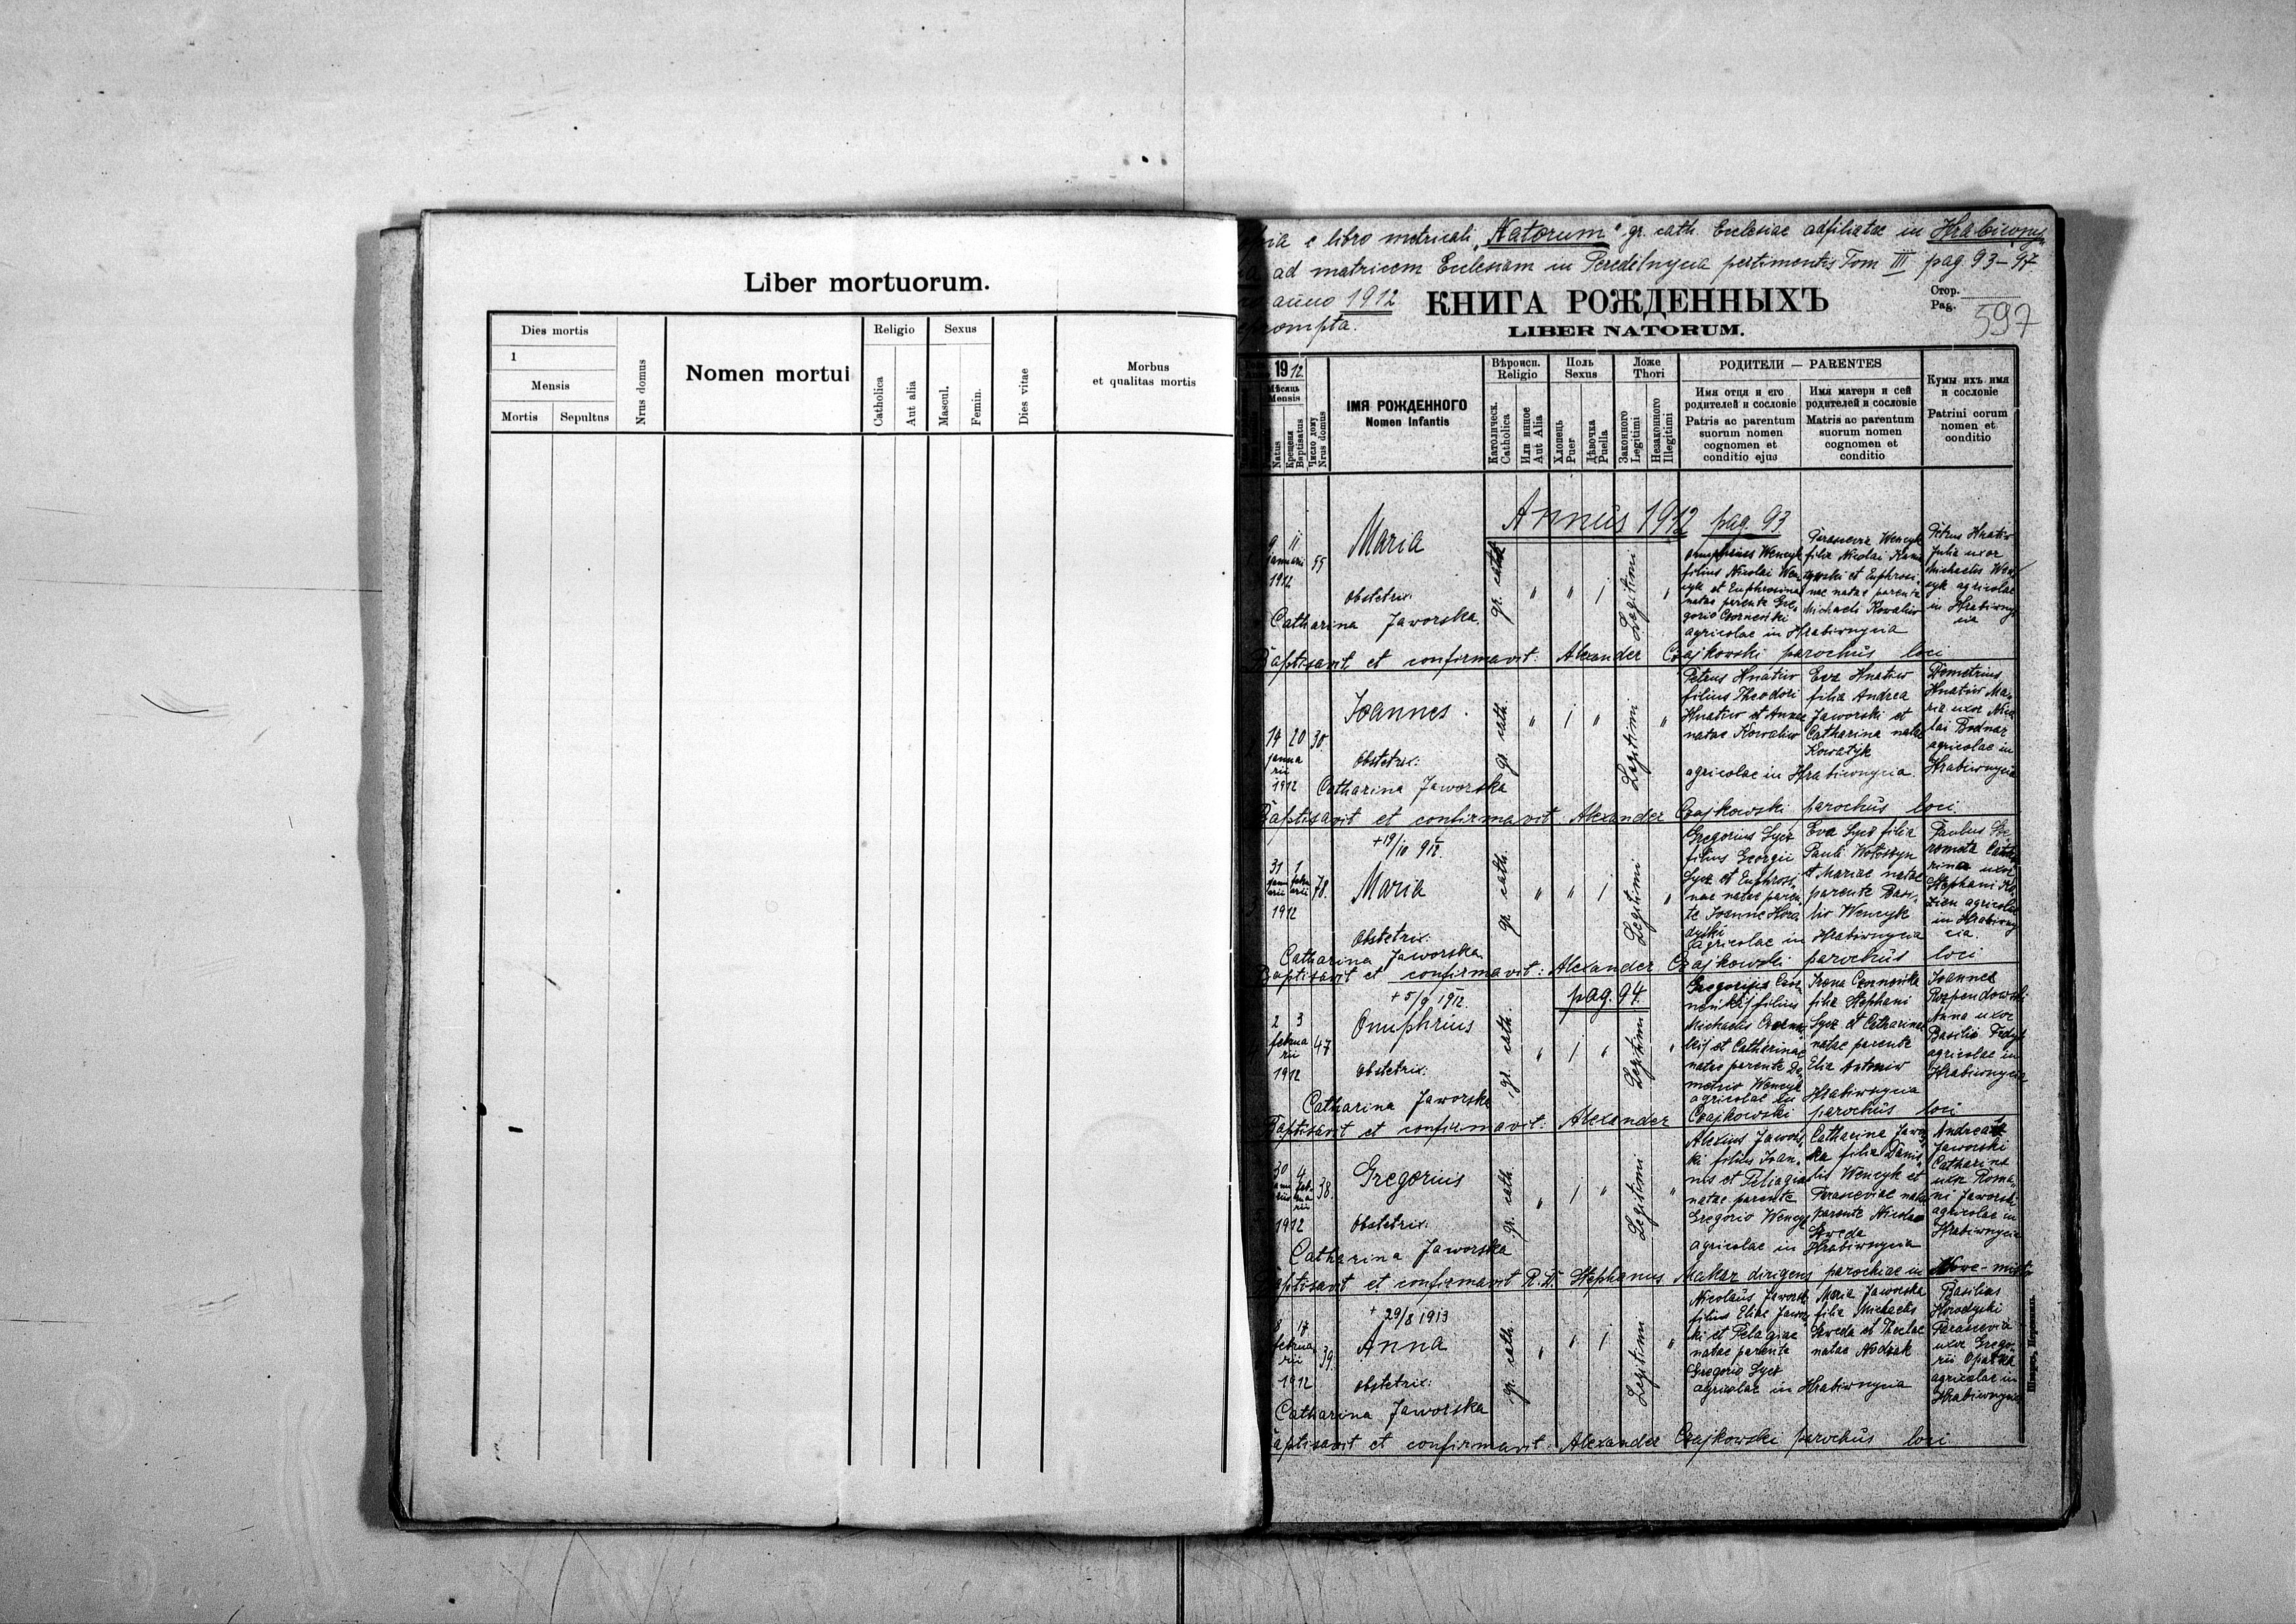 Liber mortuorum.
Dies mortis
1
Mensis
Mortis
Sepultus
Nrus domus
Nomen mortui
Religio
Catholica
Aut alia
Sexus
Mascul.
Femin.
Dies vitae
Morbus
et qualitas mortis
e libro metricali „Natorum" gr. cath. Ecclesiae adfiliatae in
ad matricem Ecclesiam in Peredilnycia pertinentis Tom III pag. 93-97
anno 1912
КНИГА РОЖДЕННЫХЪ
LIBER NATORUM.
Стор.
Pag.
597
1912
Мѣсяць
Mensis
Natus
Крещенъ
Baptisatus
Число дому
Nrus domus
ІМЯ РОЖДЕННОГО
Nomen Infantis
Вѣроисп.
Religio
Католическ.
Catholica
Или инное
Aut Alia
Поль
Sexus
Хлопець
Puer
Дѣвочка
Puella
Ложе
Thori
Законного
Legitimi
Незаконного
Illegitimi
РОДИТЕЛИ — PARENTES
Имя отця и его
родителей и сословіе
Patris ac parentum
suorum nomen
cognomen et
conditio ejus
Имя матери и сей
родителей и сословіе
Matris ac parentum
suorum nomen
cognomen et
conditio
Кумы ихъ имя
и сословіе
Patrini eorum
nomen et
conditio
Annus 1912 pag. 93
9 11
januarii
1912
55
Maria
Obstetrix:
Catharina Jaworska
gr. cath.
" " 1
Legitimi
"
Onuphrius Wencyk
filius Nicolai Wen-
cyk et Euphrosinae
natae parente Gre-
gorio Czorneńki
Parascevia Wencyk
filia Nicolai
et Euphrosi-
nae natae parente
Michaele Kowaliw
agricolae in Hrabiwnycia
Petrus Hnatiw
Julia uxor
Michaelis Wen-
cyk agricolae
in Hrabiwny-
cia
Baptisavit et confirmavit: Alexander Czajkowski parochus loci
20
janua
rii
1912
30
Joannes
Obstetrix:
Catharina Jaworska
gr. cath.
" 1 "
Legitimi
"
Petrus Hnatiw
filius Theodori
Hnatiw et Annae
natae Kowaliw
Eva Hnatiw
filia Andrea
Jaworski et
Catharina natae
Kowalyk
agricolae in Hrabiwnycia
Demetrius
Hnatiw Ma-
ria uxor Nico
lai Bodnar
agricolae in
Hrabiwnycia
Baptisavit et confirmavit Alexander Czajkowski parochus loci
+19/10 912.
31 1
1912
78.
Maria
Obstetrix:
Catharina Jaworska
gr. cath.
" " 1
Legitimi
"
Gregorius Sycz
filius Georgii
Sycz et Euphrosi-
nae natae paren-
te Joanne Horo
dyski
Eva Sycz filia
Pauli Wołoszyn
et Mariae natae
parente Basi-
lio Wencyk
agricolae in Hrabiwnycia
Paulus
Catha
rina uxor
Stephani
agricolae
in Hrabiwny
cia
Baptisavit et confirmavit: Alexander Czajkowski parochus loci
+ 5/9 1912.
pag. 94.
2 3
februa
rii
1912
47
Onuphrius
Obstetrix:
Catharina Jaworska
gr. cath.
" 1 "
Legitimi
"
Gregorius Czor-
neńkij filius
Michaelis Czorneń-
kij et Catharinae
natae parente De-
metrio Wencyk
filia Stephani
Sycz et Catharinae
natae parente
Elia Antoniw
agricolae in Hrabiwnycia
Joannes
Anna uxor
Basilii
agricolae in
Hrabiwnycia
Baptisavit et confirmavit: Alexander Czajkowski parochus loci
30 4
1912
38.
Gregorius
Obstetrix:
Catharina Jaworska
gr. cath.
" 1 "
Legitimi
"
Alexius Jawors-
ki filius Joan-
nis et Pelagiae
natae parente
Gregorio Wencyk
Catharina Jawors
ka filia Dani-
lis Wencyk et
Parasceviae natae
parente Nicolao
Szweda
agricolae in Hrabiwnycia
Andreas
Jaworski
Catharina
uxor Roma-
ni Jaworski
agricolae in
Hrabiwnycia
Baptisavit et confirmavit R. D. Stephanus Makar dirigens parochiae in Nowe-miasto
+ 29/8 1913
8 17
februa
rii
1912
39.
Anna
Obstetrix:
Catharina Jaworska
gr. cath.
" " 1
Legitimi
"
Nicolaus Jaworski
filius Eliae Jawors-
ki et Pelagiae
natae parente
Gregorio Sycz
Maria Jaworska
filia Michaelis
Szweda et Theclae
natae
agricolae in Hrabiwnycia
Basilius
Horodyski
Parascevia
uxor Grego-
rii
agricolae in
Hrabiwnycia
Baptisavit et confirmavit: Alexander Czajkowski parochus loci